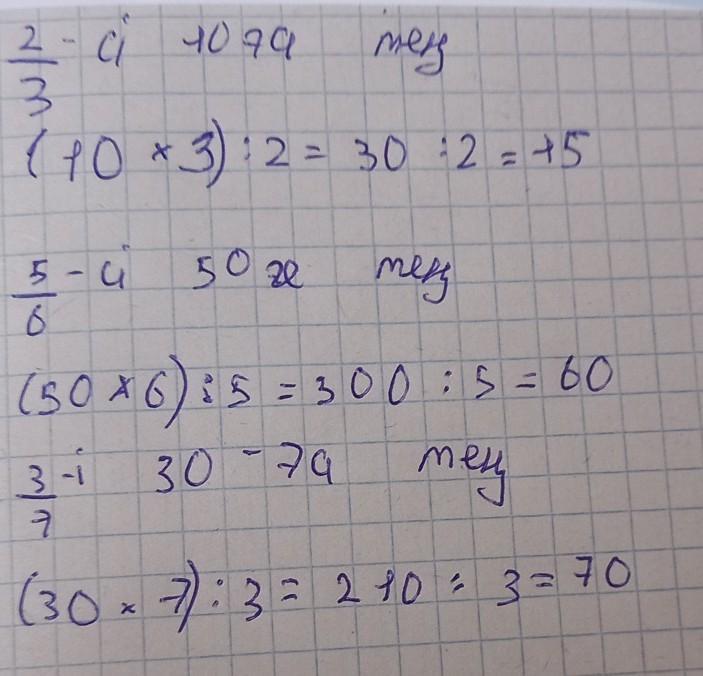 2/3 - сі 10 ға тең
(10 × 3) : 2 = 30 : 2 = 15
5/6 - сі 50 ге тең
(50 × 6) : 5 = 300 : 5 = 60
3/7 - і 30 - ға тең
(30 × 7) : 3 = 210 : 3 = 70